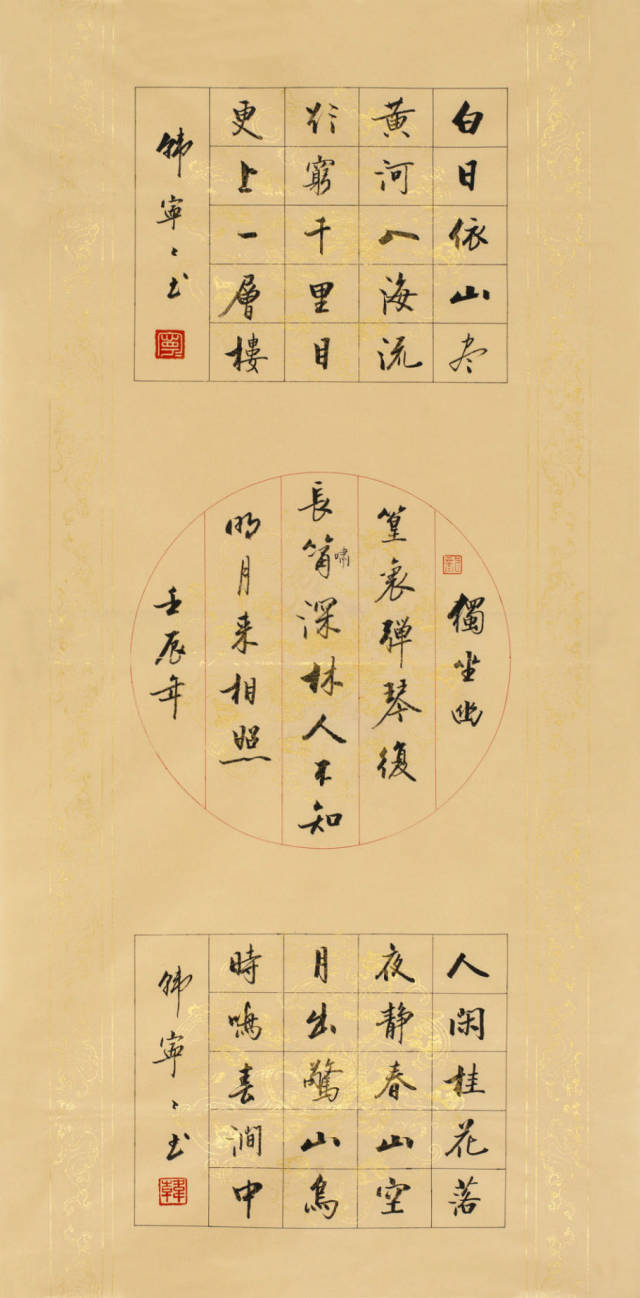 白日依山尽
黃河入海流
欲窮千里目
更上一層樓
韩寧〻书
寧
獨坐幽
篁裏彈琴復
長嘯深林人不知
明月来相照
壬辰年
人閑桂花落
夜静春山空
月出驚山鳥
時鳴春澗中
韩寧〻书
韓